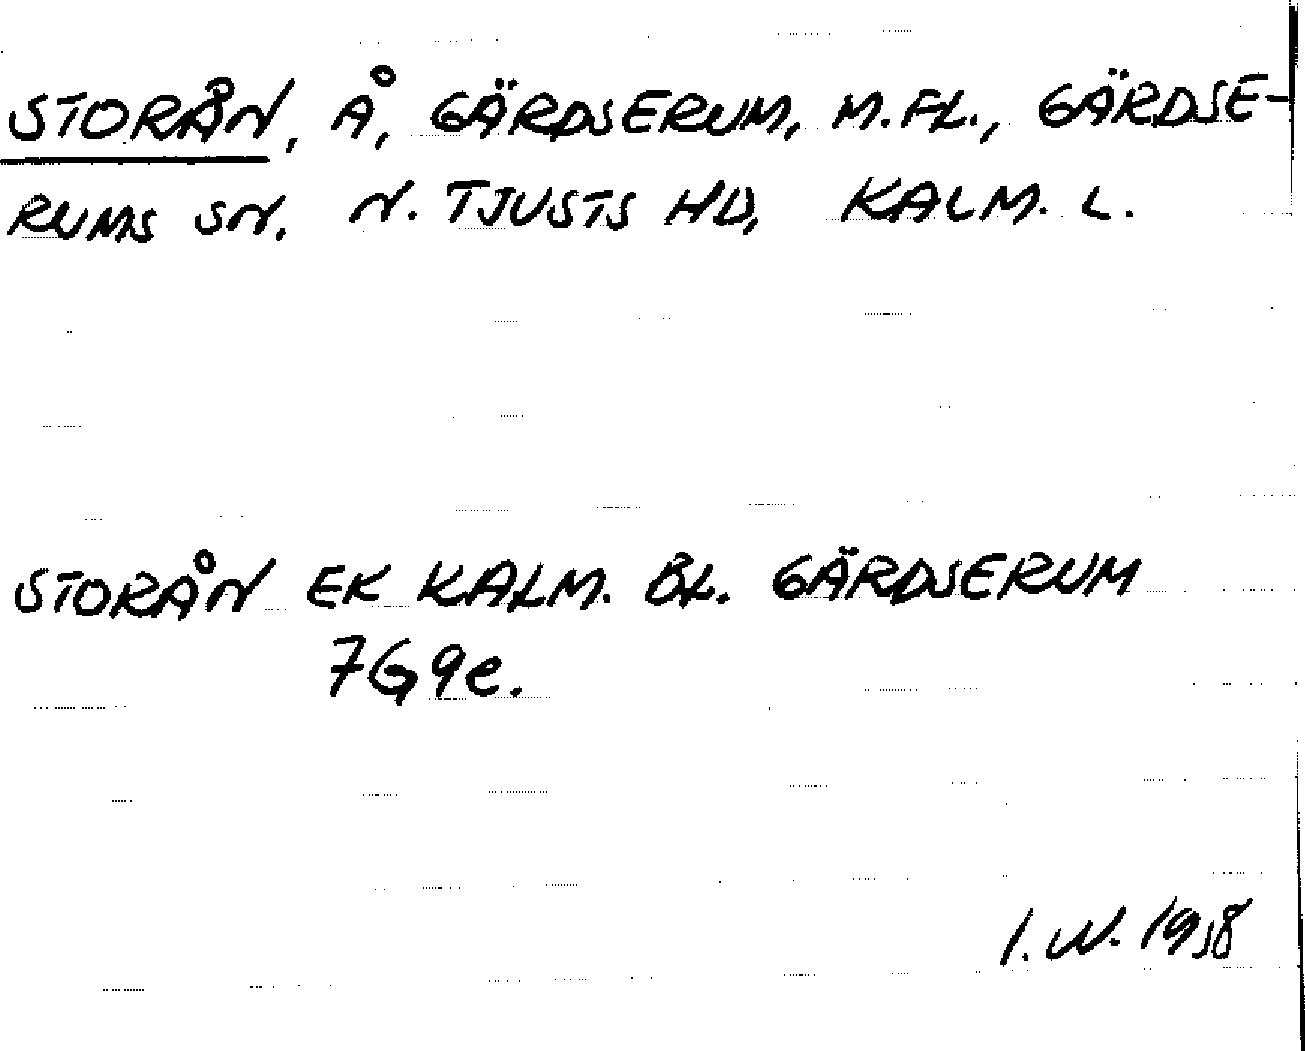 STORÅN, Å, GÄRDSERUM, M.FL., GÄRDSE-
RUMS SN. N. TJUSTS HD, KALM. L.
STORÅN EK KALM. BL. GÄRDSERUM
7G9e.
I. W. 1958